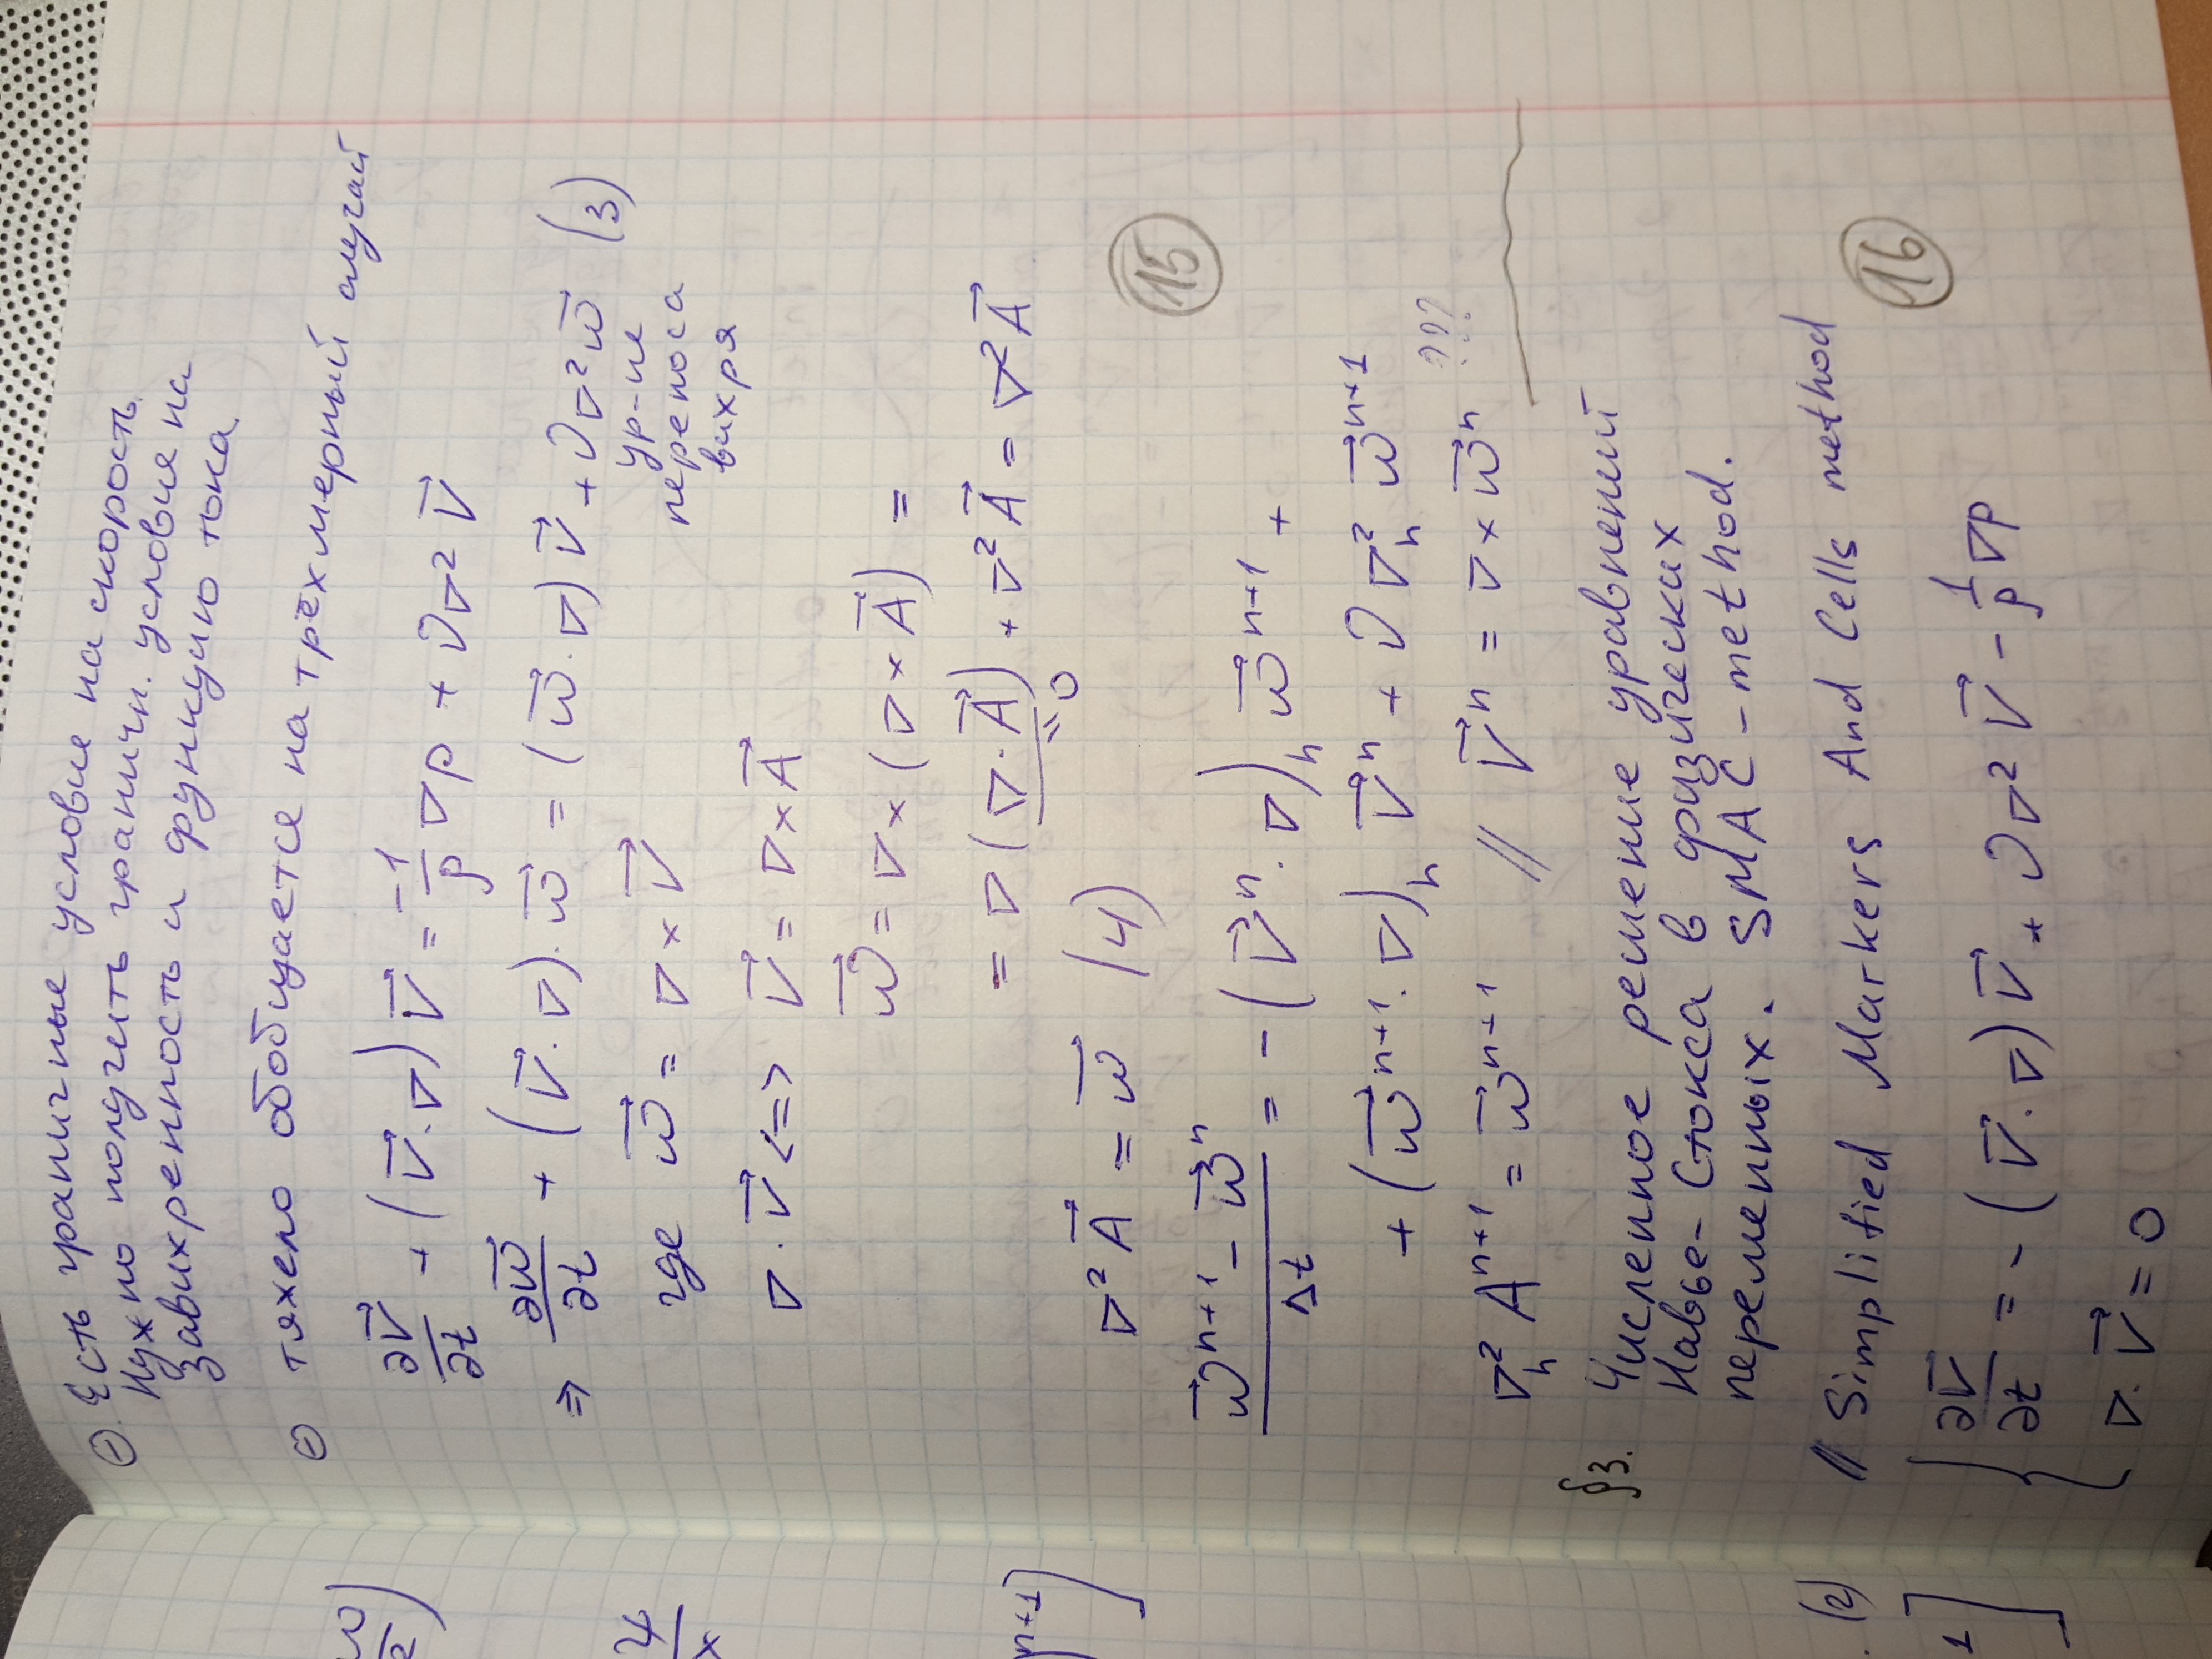 ⊖ Есть граничные условие на скорость.
Нужно получить граничн. условия на
завихренность и функцию тока.
⊖ тяжело обобщается на трёхмерный случай
∂V⃗/∂t + (V⃗·∇)V⃗ = -1/ρ ∇p + ν∇² V⃗
⇒ ∂ω⃗/∂t + (V⃗·∇)·ω⃗ = (ω⃗·∇)V⃗ + ν∇²ω⃗ (3)
ур-ие
переноса
вихря
где ω⃗ = ∇×V⃗
∇·V⃗ <=> V⃗ = ∇×A⃗
ω⃗ = ∇×(∇×A⃗) =
= ∇(∇·A⃗) + ∇²A⃗ = ∇²A⃗
"0
∇²A⃗ = ω⃗ (4)
15
(ω⃗ⁿ⁺¹ - ω⃗ⁿ)/Δt = -(V⃗ⁿ·∇)ₕ ω⃗ⁿ⁺¹ +
+ (ω⃗ⁿ⁺¹·∇)ₕ V⃗ⁿ + ν∇²ₕ ω⃗ⁿ⁺¹
∇²ₕ Aⁿ⁺¹ = ω⃗ⁿ⁺¹ // V⃗ⁿ = ∇×ω⃗ⁿ ???
§3. Численное решение уравнений
Навье-Стокса в физических
переменных. SMAC-method.
// Simplified Markers And Cells method
16
{ ∂V⃗/∂t = -(V⃗·∇)V⃗ + ν∇² V⃗ - 1/ρ ∇p
∇·V⃗ = 0
n+1]
(2)
1]